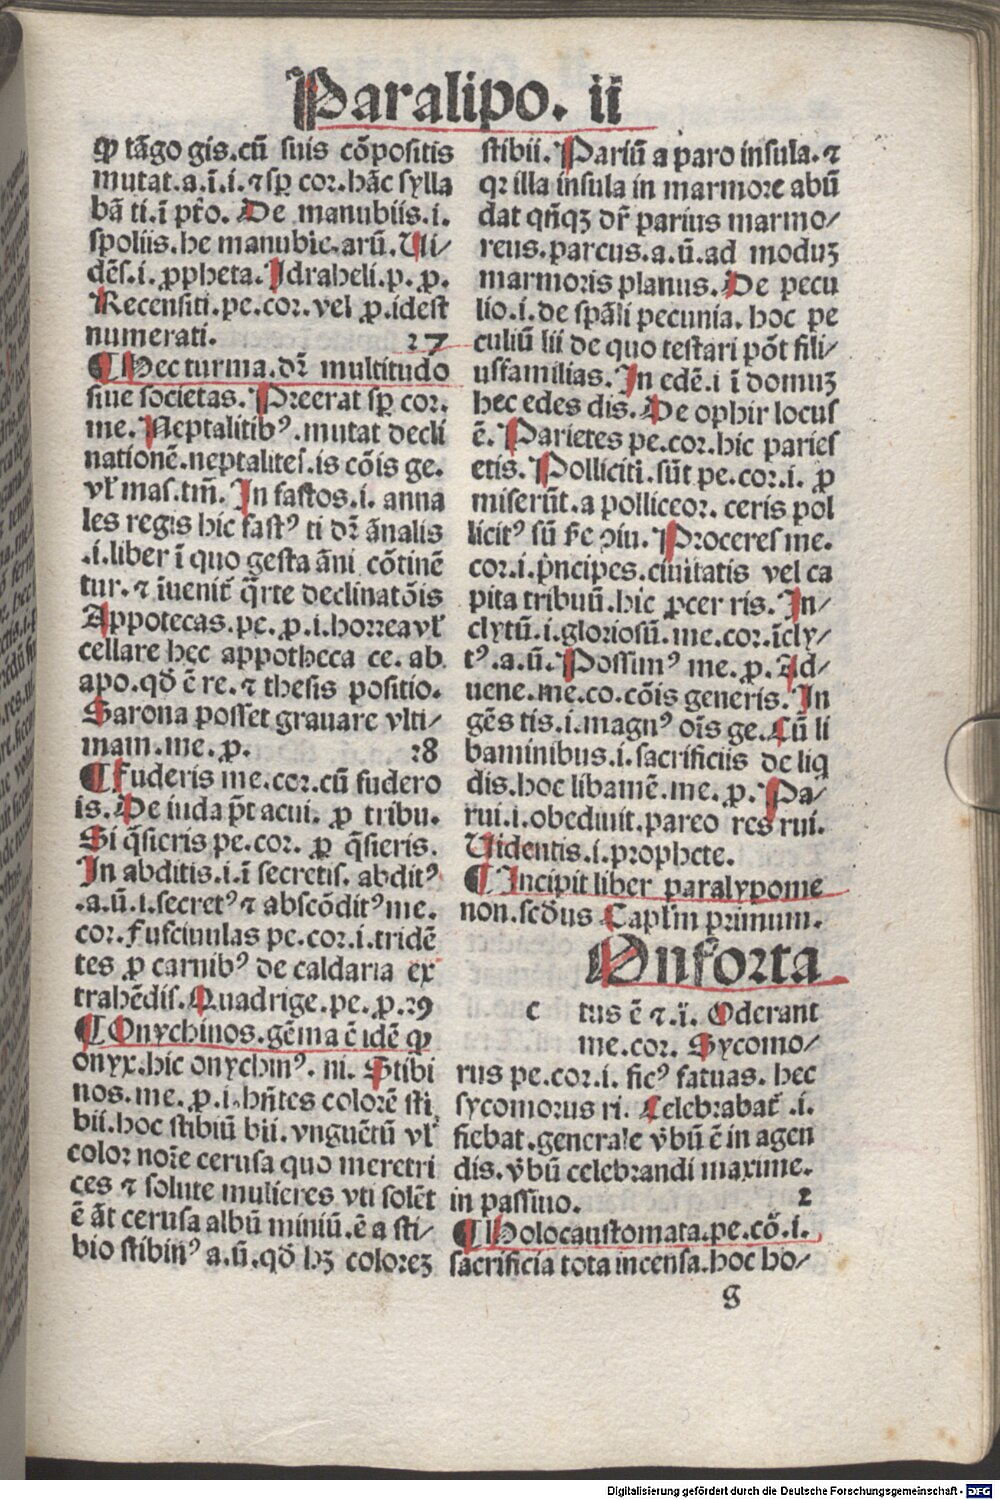 Paralipo. ii
ꝙ tãgo gis.cũ suis cõpositis
mutat.a.ĩ.i.⁊ sꝑ cor.hãc sylla
bã ti.ĩ pt̃o. De manubiis.i.
spoliis.he manubie.arũ. Ui/
dẽs.i.ꝓpheta. Israheli.p.ꝓ.
Recensiti.pe.cor.vel ꝓ.idest
numerati. 27
¶ Hec turma.dr̃ multitudo
siue societas. Preerat sꝑ cor.
me. Neptalitibꝰ.mutat decli
nationẽ.neptalites.is cõis ge.
vl̕ mas.tm̃. In fastos.i. anna
les regis hic fastꝰ ti dr̃ ãnalis
.i.liber ĩ quo gesta ãni cõtinẽ
tur.⁊ ĩuenit̃ q̃rte declinatõis
Appotecas.pe.ꝓ.i.horrea vl̕
cellare hec appotheca ce. ab
apo.qđ ẽ re.⁊ thesis positio.
Sarona posset grauare vlti/
mam.me.ꝓ. 28
¶ Fuderis me.cor.cũ fudero
is. De iuda p̃t acui. ꝓ tribu.
Si q̃sieris pe.cor. ꝓ q̃sieris.
In abditis.i.ĩ secretis. abditꝰ
.a.ũ.i.secretꝰ ⁊ abscõditꝰ me.
cor. fuscinulas pe.cor.i.tridẽ
tes ꝓ carnibꝰ de caldaria ex
trahẽdis. Quadrige.pe.ꝓ.29
¶ Onychinos.gẽma ẽ idẽ ꝙ
onyx.hic onychinꝰ. ni. Stibi
nos.me.ꝓ.i.hñtes colorẽ sti
bii.hoc stibiũ bii.vnguẽtũ vl̕
color nor̃e cerusa quo meretri
ces ⁊ solute mulieres vti solẽt
ẽ ãt cerusa albũ miniũ.ẽ a sti/
bio stibinꝰ a.ũ.qđ hꝫ coloreꝫ
stibii. Pariũ a paro insula.⁊
qꝛ illa insula in marmore abũ
dat qñqꝫ dr̃ parius marmo/
reus.parcus.a.ũ.ad moduꝫ
marmoris planus. De pecu
lio.i.de spãli pecunia. hoc pe
culiũ lii de quo testari põt fili/
usfamilias. In edẽ.i ĩ domuꝫ
hec edes dis. De ophir locus
ẽ. Parietes pe.cor.hic paries
etis. Polliciti.sũt pe.cor.i. ꝓ
miserũt.a polliceor. ceris pol
licitꝰ sũ f̃c ɔiu. Proceres me.
cor.i.p̃ncipes.ciuitatis vel ca
pita tribuũ.hic ꝓcer ris. In/
clytũ.i.gloriosũ.me.cor.ĩcly/
tꝰ.a.ũ. Possumꝰ me.ꝓ. Ad/
uene.me.co.cõis generis. In
gẽs tis.i.magnꝰ oĩs ge. Cũ li
baminibus.i.sacrificiis de liq
dis.hoc libamẽ.me.ꝓ. Pa/
rui.i.obediuit.pareo res rui.
Uidentis.i.prophete.
¶ Incipit liber paralypome
non.scđus Capl̃m primum.
Onforta
c tus ẽ ⁊.ĩ. Oderant
me.cor. Sycomo/
rus pe.cor.i. ficꝰ fatuas. hec
sycomorus ri. Celebrabat̃ .i.
fiebat.generale v̓bũ ẽ in agen
dis.v̓bũ celebrandi maxime.
in passiuo. 2
¶ Holocaustomata.pe.cõ.i.
sacrificia tota incensa.hoc ho/
g
Digitalisierung gefördert durch die Deutsche Forschungsgemeinschaft - DFG